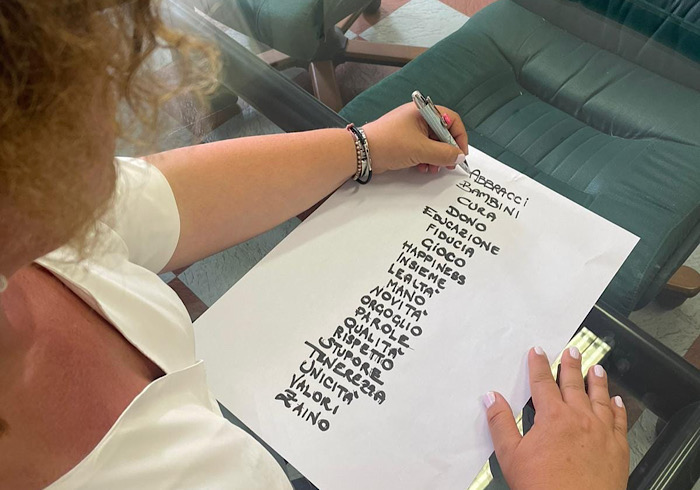 ABBRACCI
BAMBINI
CURA
DONO
EDUCAZIONE
FIDUCIA
GIOCO
HAPPINESS
INSIEME
LEALTA'
MANO
NOVITA'
ORGOGLIO
PAROLE
QUALITA'
RISPETTO
STUPORE
TENEREZZA
UNICITA'
VALORI
ZAINO